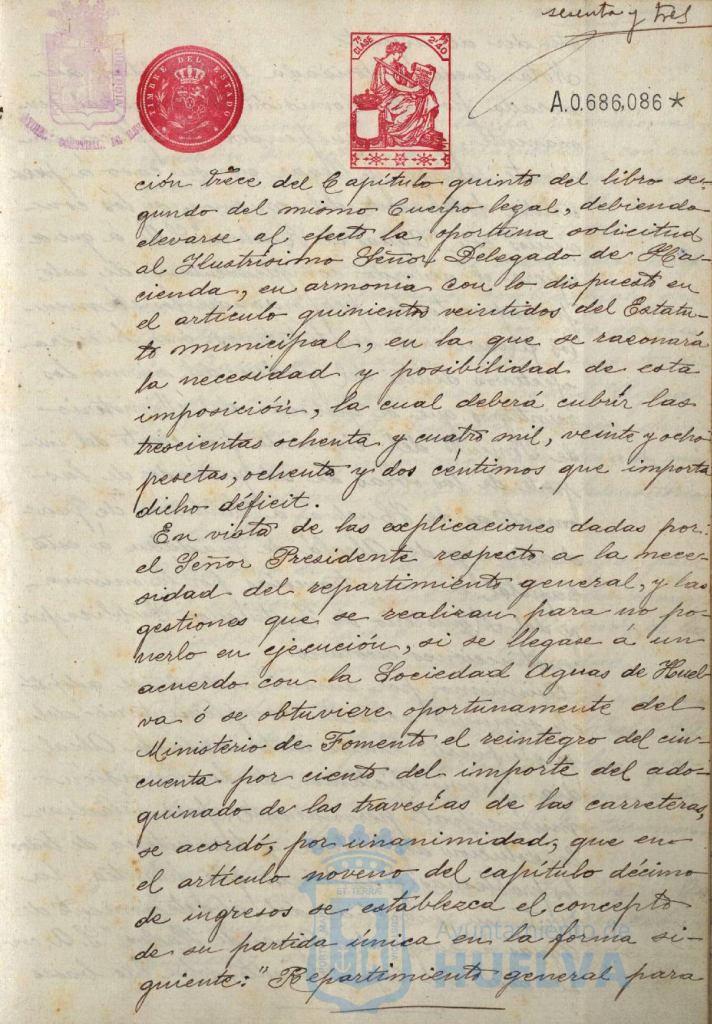 sesenta y tres
TIMBRE DEL ESTADO
7ª CLASE
2'40
A.0.686,086*
ción trece del Capítulo quinto del libro se-
gundo del mismo Cuerpo legal, debiendo
elevarse al efecto la oportuna solicitud
al Ilustrísimo Señor Delegado de Ha-
cienda, en armonia con lo dispuesto en
el artículo quinientos veintidos del Estatu-
to municipal, en la que se razonará
la necesidad y posibilidad de esta
imposición, la cual deberá cubrir las
trescientas ochenta y cuatro mil, veinte y ocho
pesetas, ochenta y dos céntimos que importa
dicho déficit.
En vista de las explicaciones dadas por
el Señor Presidente respecto a la nece-
sidad del repartimiento general, y las
gestiones que se realizan para no po-
nerlo en ejecución, si se llegase á un
acuerdo con la Sociedad Aguas de Huel-
va ó se obtuviere oportunamente del
Ministerio de Fomento el reintegro del cin-
cuenta por ciento del importe del ado-
quinado de las travesías de las carreteras,
se acordó, por unanimidad, que en
el artículo noveno del capítulo décimo
de ingresos se establezca el concepto
de su partida única en la forma si-
guiente: "Repartimiento general para
Ayuntamiento de
HUELVA